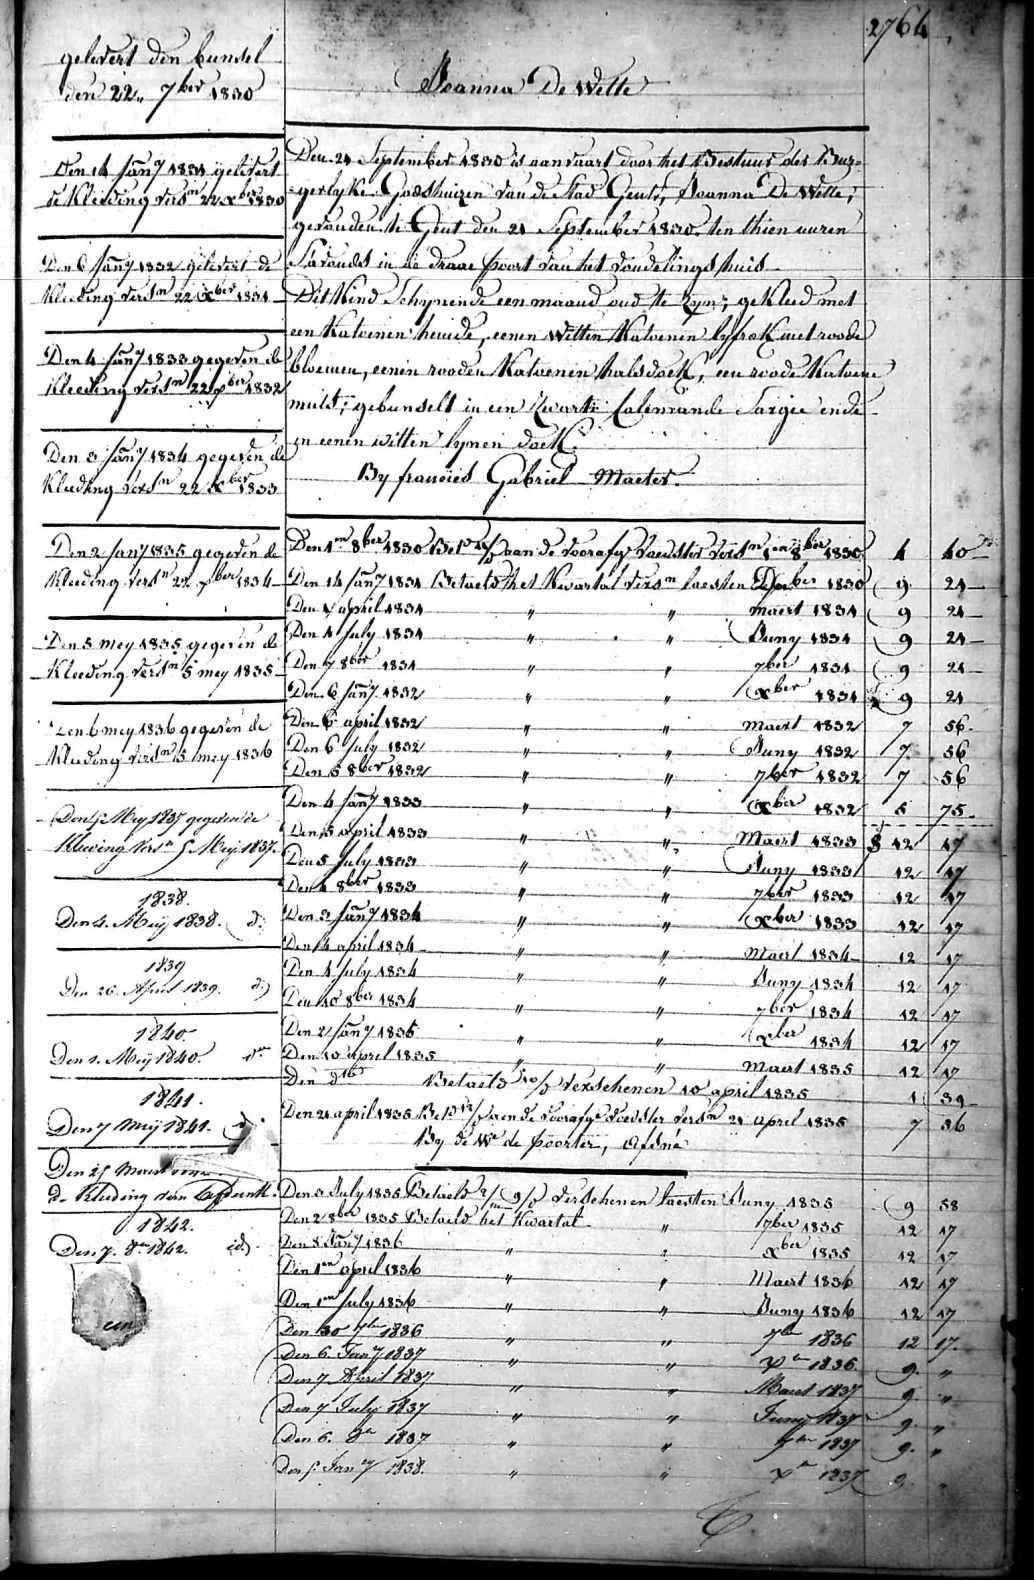 2764
gelevert den bunsel
den 22„ 7ber 1830
Joanna De Wette
Den 14 Jany 1831 gelevert
de Kleeding versn 22 xber 1830
Den 6 Jany 1832 gelevert de
Kleeding versn 22 xber 1831
Den 4 Jany 1833 gegeven de
Kleeding versn 22 xber 1832
Den 3 Jany 1834 gegeven de
Kleeding versn 22 xber 1833
Den 2 Jany 1835 gegeven de
Kleeding versn 22 xber 1834
Den 5 mey 1835 gegeven de
Kleeding versn 5 mey 1835
Den 6 mey 1836 gegeven de
Kleeding versn 5 mey 1836
Den 5 Mey 1837 gegeven de
Kleeding versn 5 Meij 1837.
1838.
Den 4. Meij 1838. d:
1839
Den 26. April 1839. d:
1840.
Den 1. Meij 1840. do
1841.
Den 7 Meij 1841.
Den 25 Maert
de Kleeding van
1842.
Den 7. 8er 1842. id.
Den 21 September 1830 is aanvaart door het Bestuur der Bur-
gerlyke Godshuizen van de Stad Gent, Joanna De Wette,
gevonden te Gent den 21 September 1830. ten thien uuren
s'avonds in de draae poort van het vondelingshuis
Dit Kind Schynende een maand oud te zyn; gekleed met
een Katoenen hemde, eenen witten Katoenen lyfrok met roode
bloemen, eenen rooden Katoenen halsdoek, een roode Katoene
muts; gebunselt in een zwarte Calemande Sargie ende
in eenen witten lynen doek.
By francies Gabriel Maeter.
Den 1en 8ber 1830 Bet aan de voorafge voedster versn 1en 8ber 1830 1 40
Den 14 Jany 1831 Betaeld het Kwartal versn laesten Xber 1830 9 21
Den 4 april 1831 „ „ maert 1831 9 21
Den 4 July 1831 „ „ Juny 1831 9 21
Den 7 8ber 1831 „ „ 7ber 1831 9 21
Den 6 Jany 1832 „ „ xber 1831 9 21
Den 6 april 1832 „ „ maert 1832 7 56
Den 6 July 1832 „ „ Juny 1832 7 56
Den 5 8ber 1832 „ „ 7ber 1832 7 56
Den 4 Jany 1833 „ „ xber 1832 5 75
Den 5 april 1833 „ „ Maert 1833 12 17
Den 5 July 1833 „ „ Juny 1833 12 17
Den 4 8ber 1833 „ „ 7ber 1833 12 17
Den 3 Jany 1834 „ „ xber 1833 12 17
Den 4 april 1834 „ „ Maert 1834 12 17
Den 4 July 1834 „ „ Juny 1834 12 17
Den 10 8ber 1834 „ „ 7ber 1834 12 17
Den 2 Jany 1835 „ „ xber 1834 12 17
Den 10 april 1835 „ „ Maert 1835 12 17
Den dto Betaeld 10/ verschenen 10 april 1835 1 39
Den 21 april 1835 Bet aen de voorafge voedster versn 21 april 1835 7 36
By de We de Poorter, Afsné
Den 3 July 1835 Betaeld verschenen laesten Juny 1835 9 58
Den 2 8ber 1835 Betaeld het Kwartal „ 7ber 1835 12 17
Den 8 Jany 1836 „ „ xber 1835 12 17
Den 1en april 1836 „ „ Maert 1836 12 17
Den 1en July 1836 „ „ Juny 1836 12 17
Den 30 7ber 1836 „ „ 7ber 1836 12 17.
Den 6 Jany 1837 „ „ xber 1836. 9. „
Den 7 April 1837 „ „ Maert 1837 9. „
Den 7 July 1837 „ „ Juny 1837 9. „
Den 6. 8er 1837 „ „ 7ber 1837 9. „
Den 5 Jany 1838. „ „ xer 1837 9. „